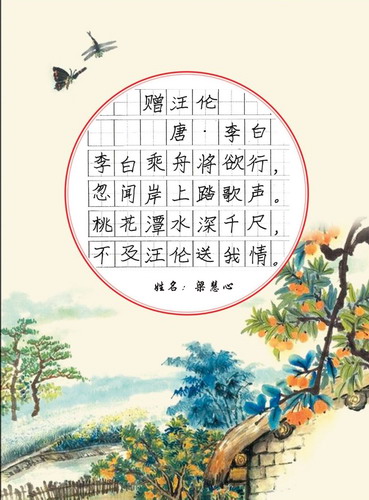 赠汪伦
唐·李白
李白乘舟将欲行，
忽闻岸上踏歌声。
桃花潭水深千尺，
不及汪伦送我情。
姓名：梁慧心